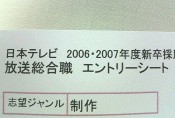 日本テレビ 2006・2007年度新卒採
放送総合職 エントリーシート
志望ジャンル 制作